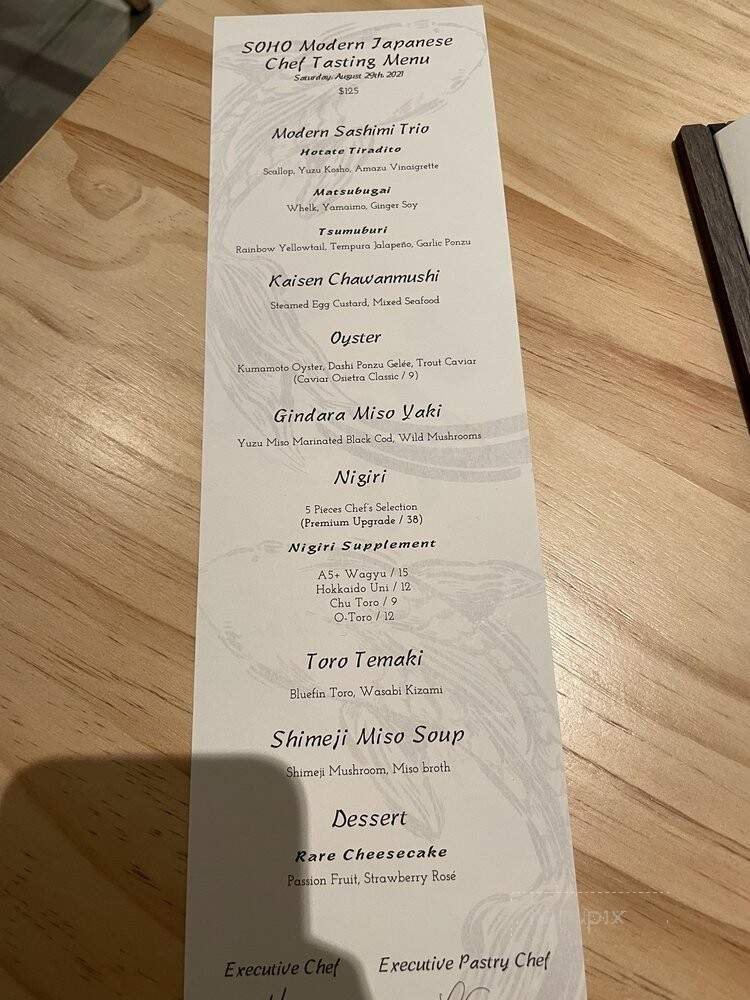 SOHO Modern Japanese
Chef Tasting Menu
Saturday, August 29th, 2021
$125
Modern Sashimi Trio
Hotate Tiradito
Scallop, Yuzu Kosho, Amazu Vinaigrette
Matsubugai
Whelk, Yamaimo, Ginger Soy
Tsumuburi
Rainbow Yellowtail, Tempura Jalapeño, Garlic Ponzu
Kaisen Chawanmushi
Steamed Egg Custard, Mixed Seafood
Oyster
Kumamoto Oyster, Dashi Ponzu Gelée, Trout Caviar
(Caviar Osietra Classic / 9)
Gindara Miso Yaki
Yuzu Miso Marinated Black Cod, Wild Mushrooms
Nigiri
5 Pieces Chef's Selection
(Premium Upgrade / 38)
Nigiri Supplement
A5+ Wagyu / 15
Hokkaido Uni / 12
Chu Toro / 9
O-Toro / 12
Toro Temaki
Bluefin Toro, Wasabi Kizami
Shimeji Miso Soup
Shimeji Mushroom, Miso broth
Dessert
Rare Cheesecake
Passion Fruit, Strawberry Rosé
Executive Chef Executive Pastry Chef